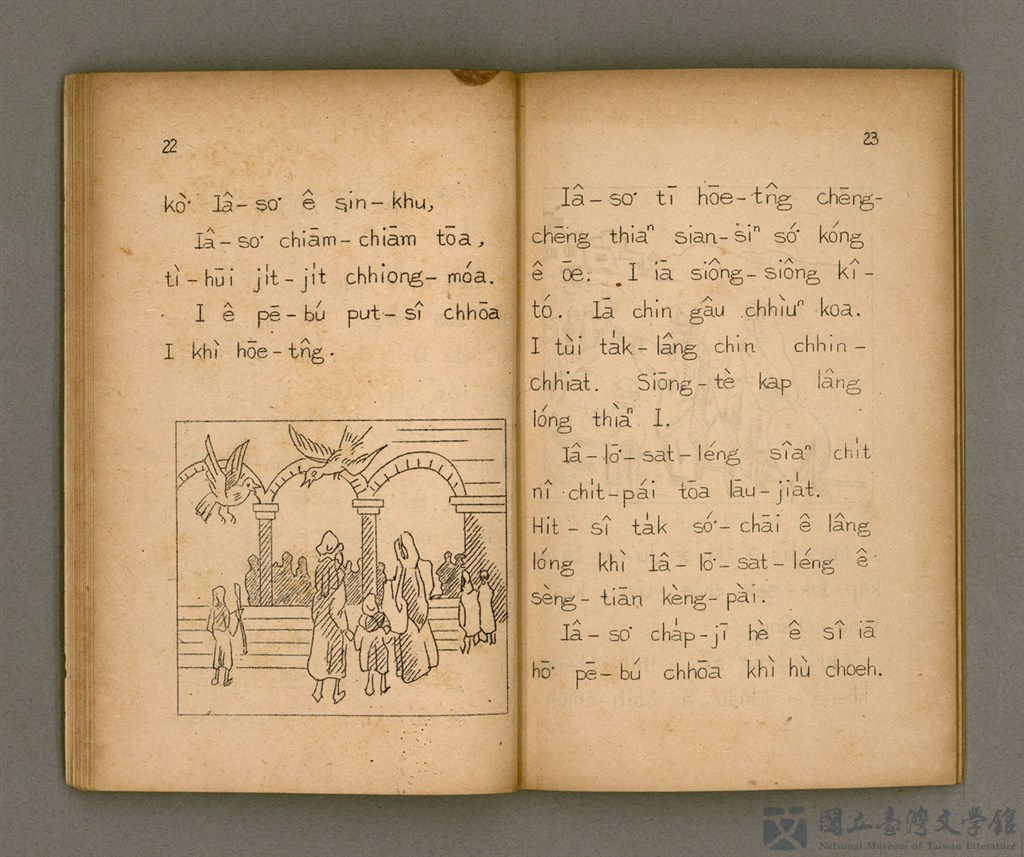 22
kò͘ Iâ-so͘ ê sin-khu,
Iâ-so͘ chiām-chiām tōa,
tì-hūi ji̍t-ji̍t chhiong-móa.
I ê pē-bú put-sî chhōa
I khì hōe-tn̂g.
23
Iâ-so͘ tī hōe-tn̂g chēng-
chēng thiaⁿ sian-siⁿ só͘ kóng
ê ōe. I iā siông-siông kî-
tó. Iā chin gâu chhiùⁿ koa.
I tùi ta̍k-lâng chin chhin-
chhiat. Siōng-tè kap lâng
lóng thiàⁿ I.
Iâ-lō͘-sat-léng sîaⁿ chi̍t
nî chi̍t-pái tōa lāu-jia̍t.
Hit-sî ta̍k só͘-chāi ê lâng
lóng khì Iâ-lō͘-sat-léng ê
sèng-tiān kèng-pài.
Iâ-so͘ cha̍p-jī hè ê sî iā
hō͘ pē-bú chhōa khì hù choeh.
國立臺灣文學館
National Museum of Taiwan Literature